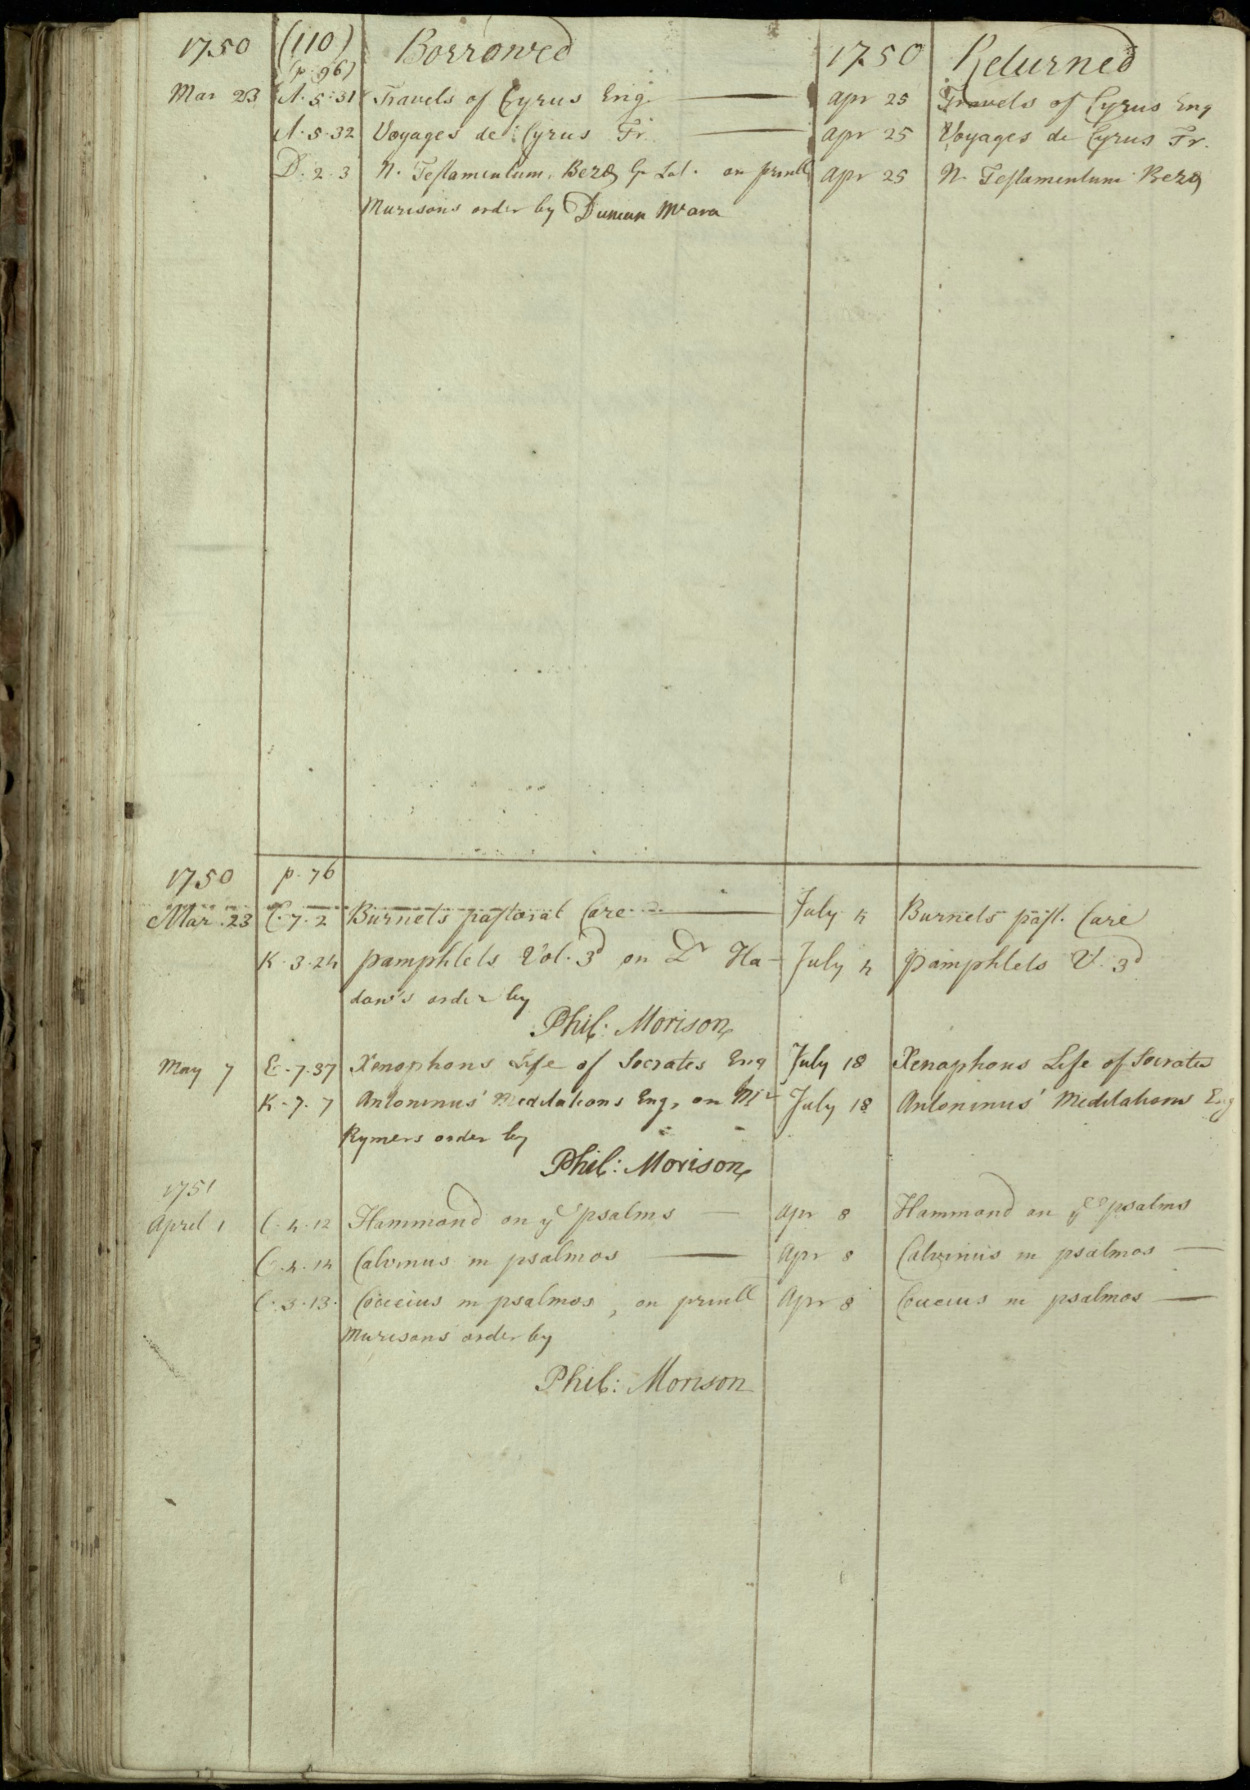 1750 (110) Borrowed 1750 Returned
(p. 96)
Mar 23 A. 5. 31 Travels of Cyrus Eng. Apr 25 Travels of Cyrus Eng
A. 5. 32 Voyages de Cyrus Fr. Apr 25 Voyages de Cyrus Fr.
D. 2. 3 N. Testamentum, Bezæ Gr Lat. on prinll Apr 25 N. Testamentum Bezæ
Murisons order by Duncan McAra
1750 p. 76
Mar. 23 C. 7. 2 Burnets pastoral Care July 4 Burnets past. Care
K. 3. 24 pamphlets Vol. 3d on Dr Ha- July 4 pamphlets V. 3d
dow's order by
Phil: Morison
May 7 E. 7. 37 Xenophons Life of Socrates Eng July 18 Xenophons Life of Socrates
K. 7. 7 Antoninus' Meditations Eng, on Mr July 18 Antoninus' Meditations Eng
Rymers order by
Phil: Morison
1751
April 1 C. 4. 12 Hammond on ye psalms Apr 8 Hammond on ye psalms
C. 4. 14 Calvinus in psalmos Apr 8 Calvinus in psalmos
C. 3. 13. Cocceius in psalmos, on prinll Apr 8 Cocceius in psalmos
Murisons order by
Phil: Morison